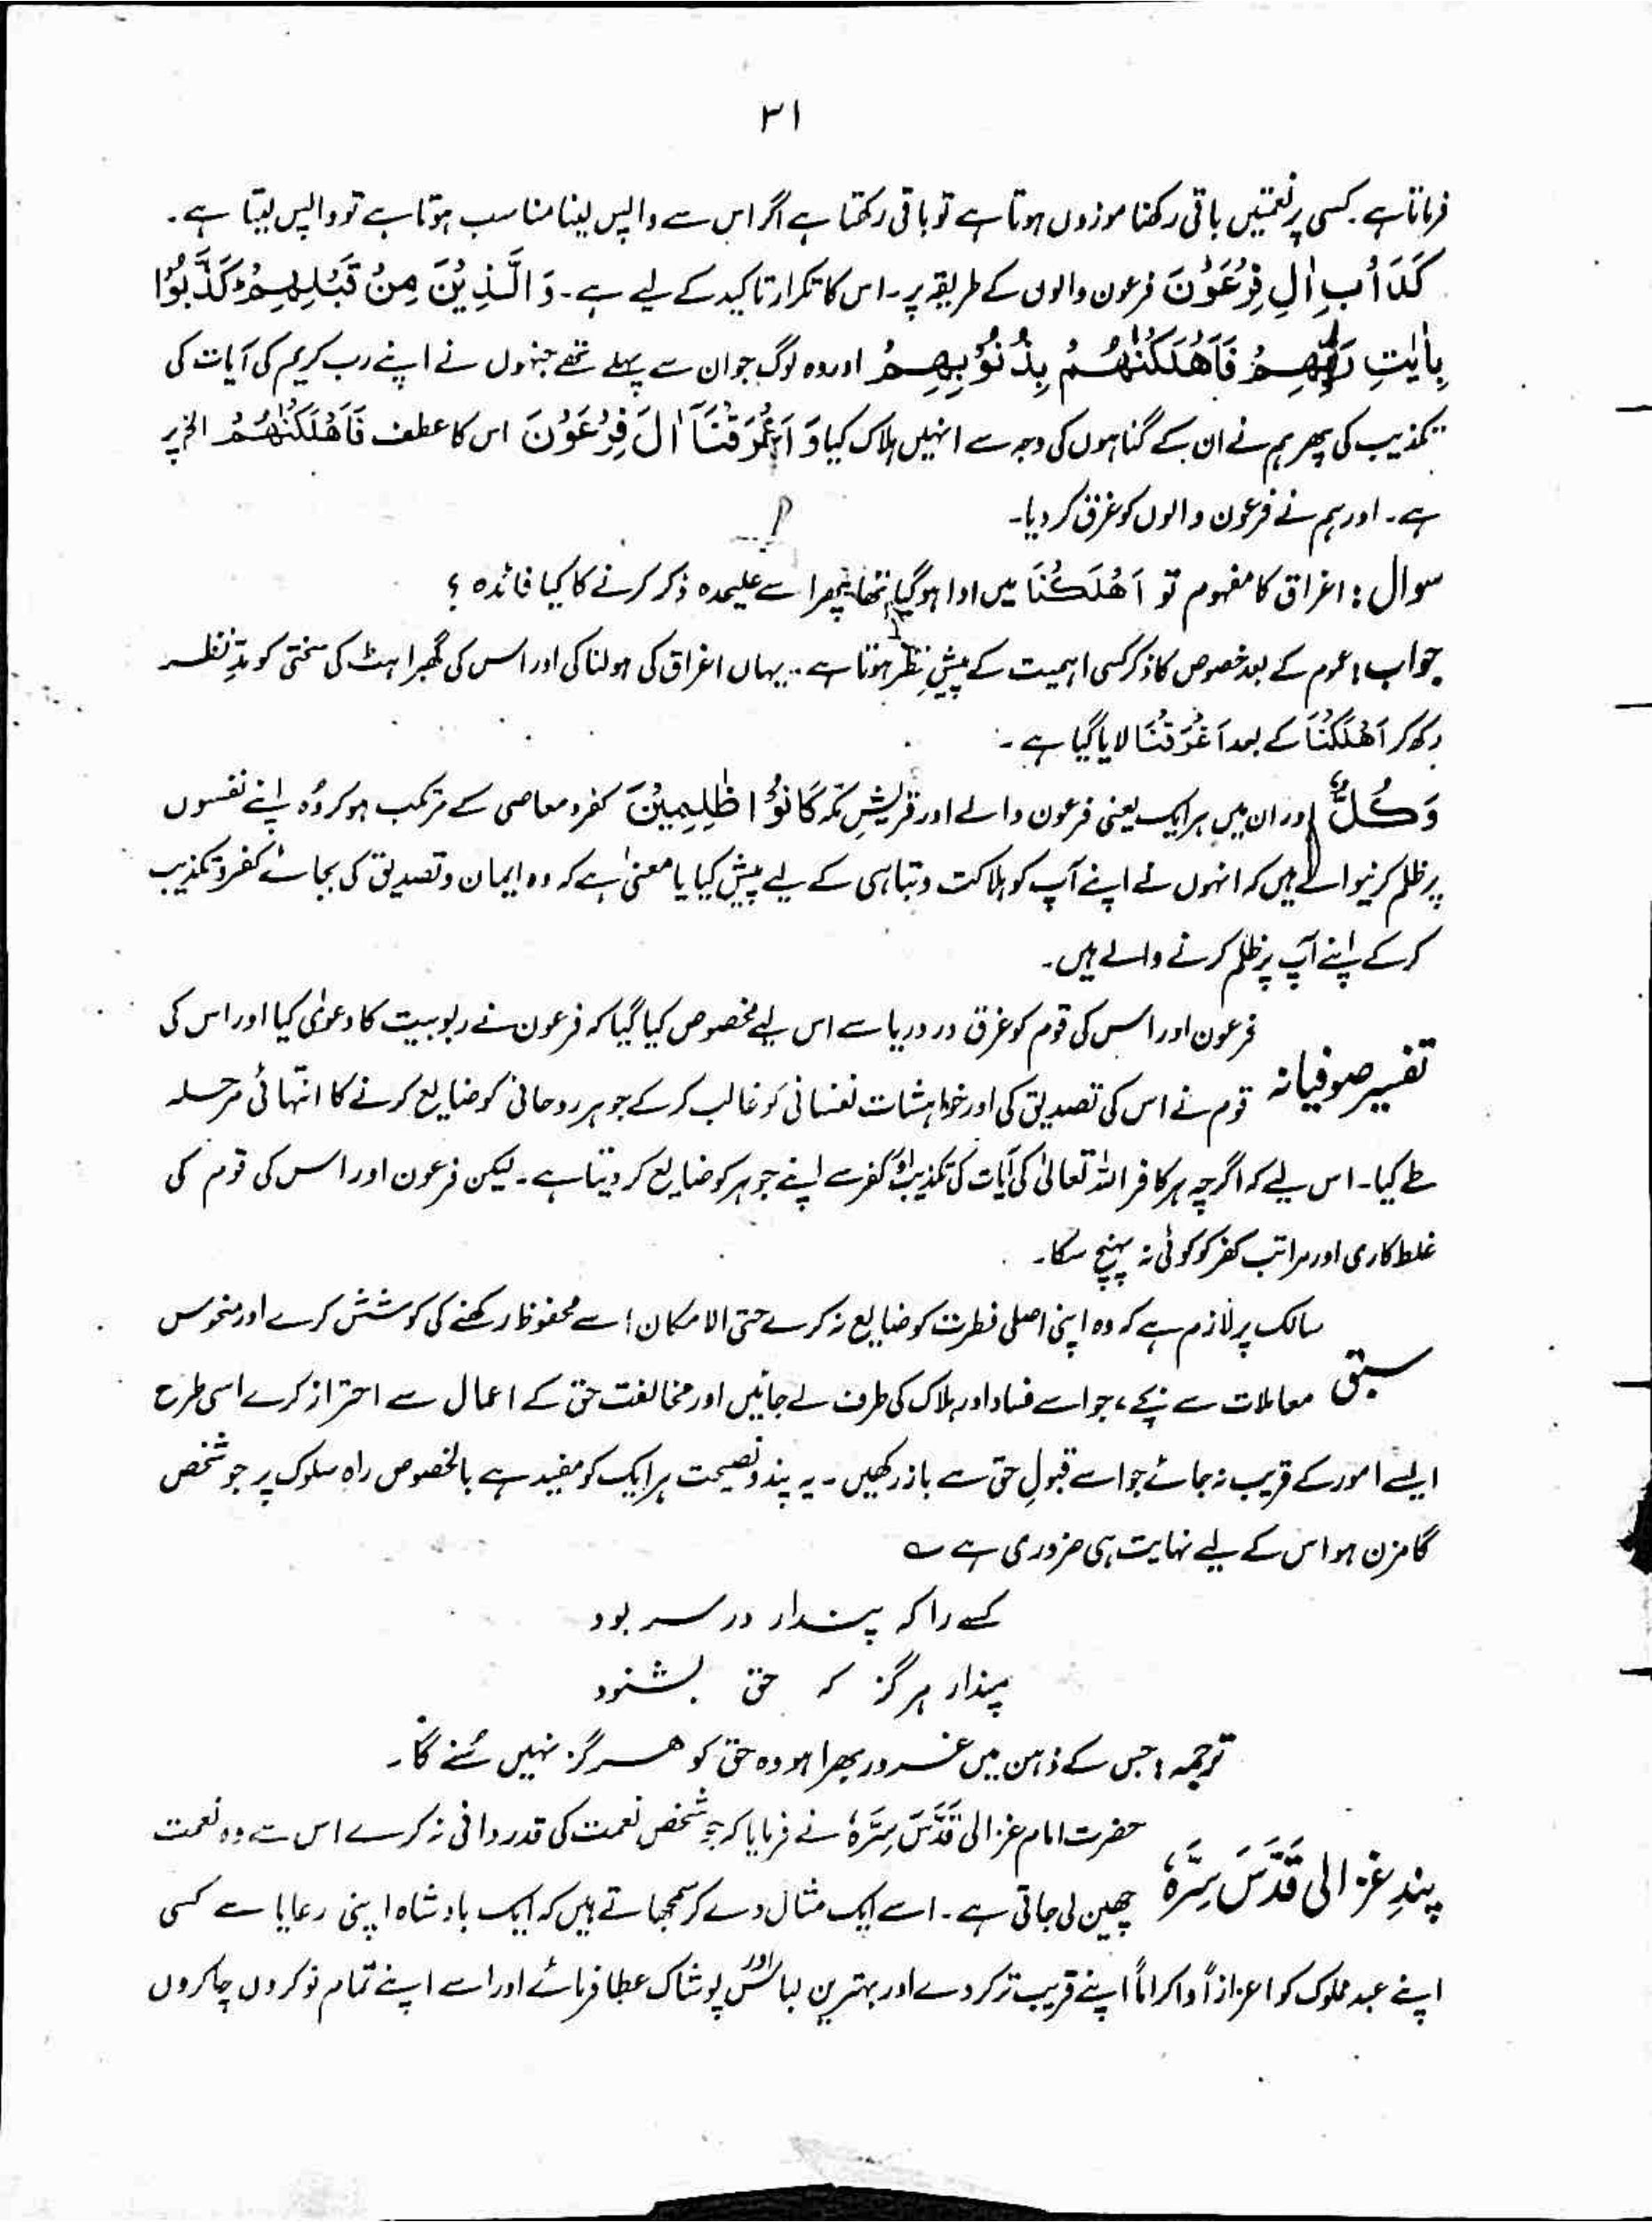 ۳۱
فرماتا ہے۔ کسی پر نعمتیں باقی رکھنا موزوں ہوتا ہے تو باقی رکھتا ہے اگر اس سے واپس لینا مناسب ہوتا ہے تو واپس لیتا ہے۔
كَدَاْبِ اٰلِ فِرْعَوْنَ فرعون والوں کے طریقہ پر۔ اس کا تکرار تاکید کے لیے ہے۔ وَالَّذِیْنَ مِنْ قَبْلِهِمْ كَذَّبُوْا
بِاٰیٰتِ رَبِّهِمْ فَاَهْلَكْنٰهُمْ بِذُنُوْبِهِمْ اور وہ لوگ جو ان سے پہلے تھے جنہوں نے اپنے رب کریم کی آیات کی
تکذیب کی پھر ہم نے ان کے گناہوں کی وجہ سے انہیں ہلاک کیا وَ اَغْرَقْنَاۤ اٰلَ فِرْعَوْنَ اس کا عطف فَاَهْلَكْنٰهُمْ الخ پر
ہے۔ اور ہم نے فرعون والوں کو غرق کر دیا۔
سوال: اغراق کا مفہوم تو اَهْلَكْنَا میں ادا ہو گیا تھا پھر اسے علیحدہ ذکر کرنے کا کیا فائدہ؟
جواب: عموم کے بعد خصوص کا ذکر کسی اہمیت کے پیشِ نظر ہوتا ہے۔ یہاں اغراق کی ہولناکی اور اس کی گھبراہٹ کی سختی کو مدِّ نظر
رکھ کر اَهْلَكْنَا کے بعد اَغْرَقْنَا لایا گیا ہے۔
وَكُلٌّ اور ان میں ہر ایک یعنی فرعون والے اور قریشِ مکہ كَانُوْا ظٰلِمِیْنَ کفر و معاصی کے مرتکب ہو کر وُہ اپنے نفسوں
پر ظلم کرنیوالے ہیں کہ انہوں نے اپنے آپ کو ہلاکت و تباہی کے لیے پیش کیا یا معنیٰ ہے کہ وہ ایمان و تصدیق کی بجائے کفر و تکذیب
کر کے اپنے آپ پر ظلم کرنے والے ہیں۔
فرعون اور اس کی قوم کو غرق در دریا سے اس لیے مخصوص کیا گیا کہ فرعون نے ربوبیت کا دعوٰی کیا اور اس کی
تفسیر صوفیانہ قوم نے اس کی تصدیق کی اور خواہشات نفسانی کو غالب کر کے جوہر روحانی کو ضایع کرنے کا انتہائی مرحلہ
طے کیا۔ اس لیے کہ اگرچہ ہر کافر اللہ تعالیٰ کی آیات کی تکذیب اور کفر سے اپنے جوہر کو ضایع کر دیتا ہے۔ لیکن فرعون اور اس کی قوم کی
غلط کاری اور مراتب کفر کو کوئی نہ پہنچ سکا۔
سالک پر لازم ہے کہ وہ اپنی اصلی فطرت کو ضایع نہ کرے حتی الامکان اسے محفوظ رکھنے کی کوشش کرے اور منحوس
سبق معاملات سے بچے، جو اسے فساد اور ہلاک کی طرف لے جائیں اور مخالفت حق کے اعمال سے احتراز کرے اسی طرح
ایسے امور کے قریب نہ جائے جو اسے قبولِ حق سے باز رکھیں۔ یہ پند و نصیحت ہر ایک کو مفید ہے بالخصوص راہ سلوک پر جو شخص
گامزن ہو اس کے لیے نہایت ہی ضروری ہے ؎
کسے را کہ پندار در سر بود
مپندار ہرگز کہ حق بشنود
ترجمہ: جس کے ذہن میں غرور بھرا ہو وہ حق کو ہرگز نہیں سُنے گا۔
حضرت امام غزالی قَدَّسَ سِرَّہٗ نے فرمایا کہ جو شخص نعمت کی قدر دانی نہ کرے اس سے وہ نعمت
پندِ غزالی قَدَّسَ سِرَّہٗ چھین لی جاتی ہے۔ اسے ایک مثال دے کر سمجھاتے ہیں کہ ایک بادشاہ اپنی رعایا سے کسی
اپنے عبد مملوک کو اعزازاً و اکراماً اپنے قریب تر کر دے اور بہترین لباس اور پوشاک عطا فرمائے اور اسے اپنے تمام نوکروں چاکروں